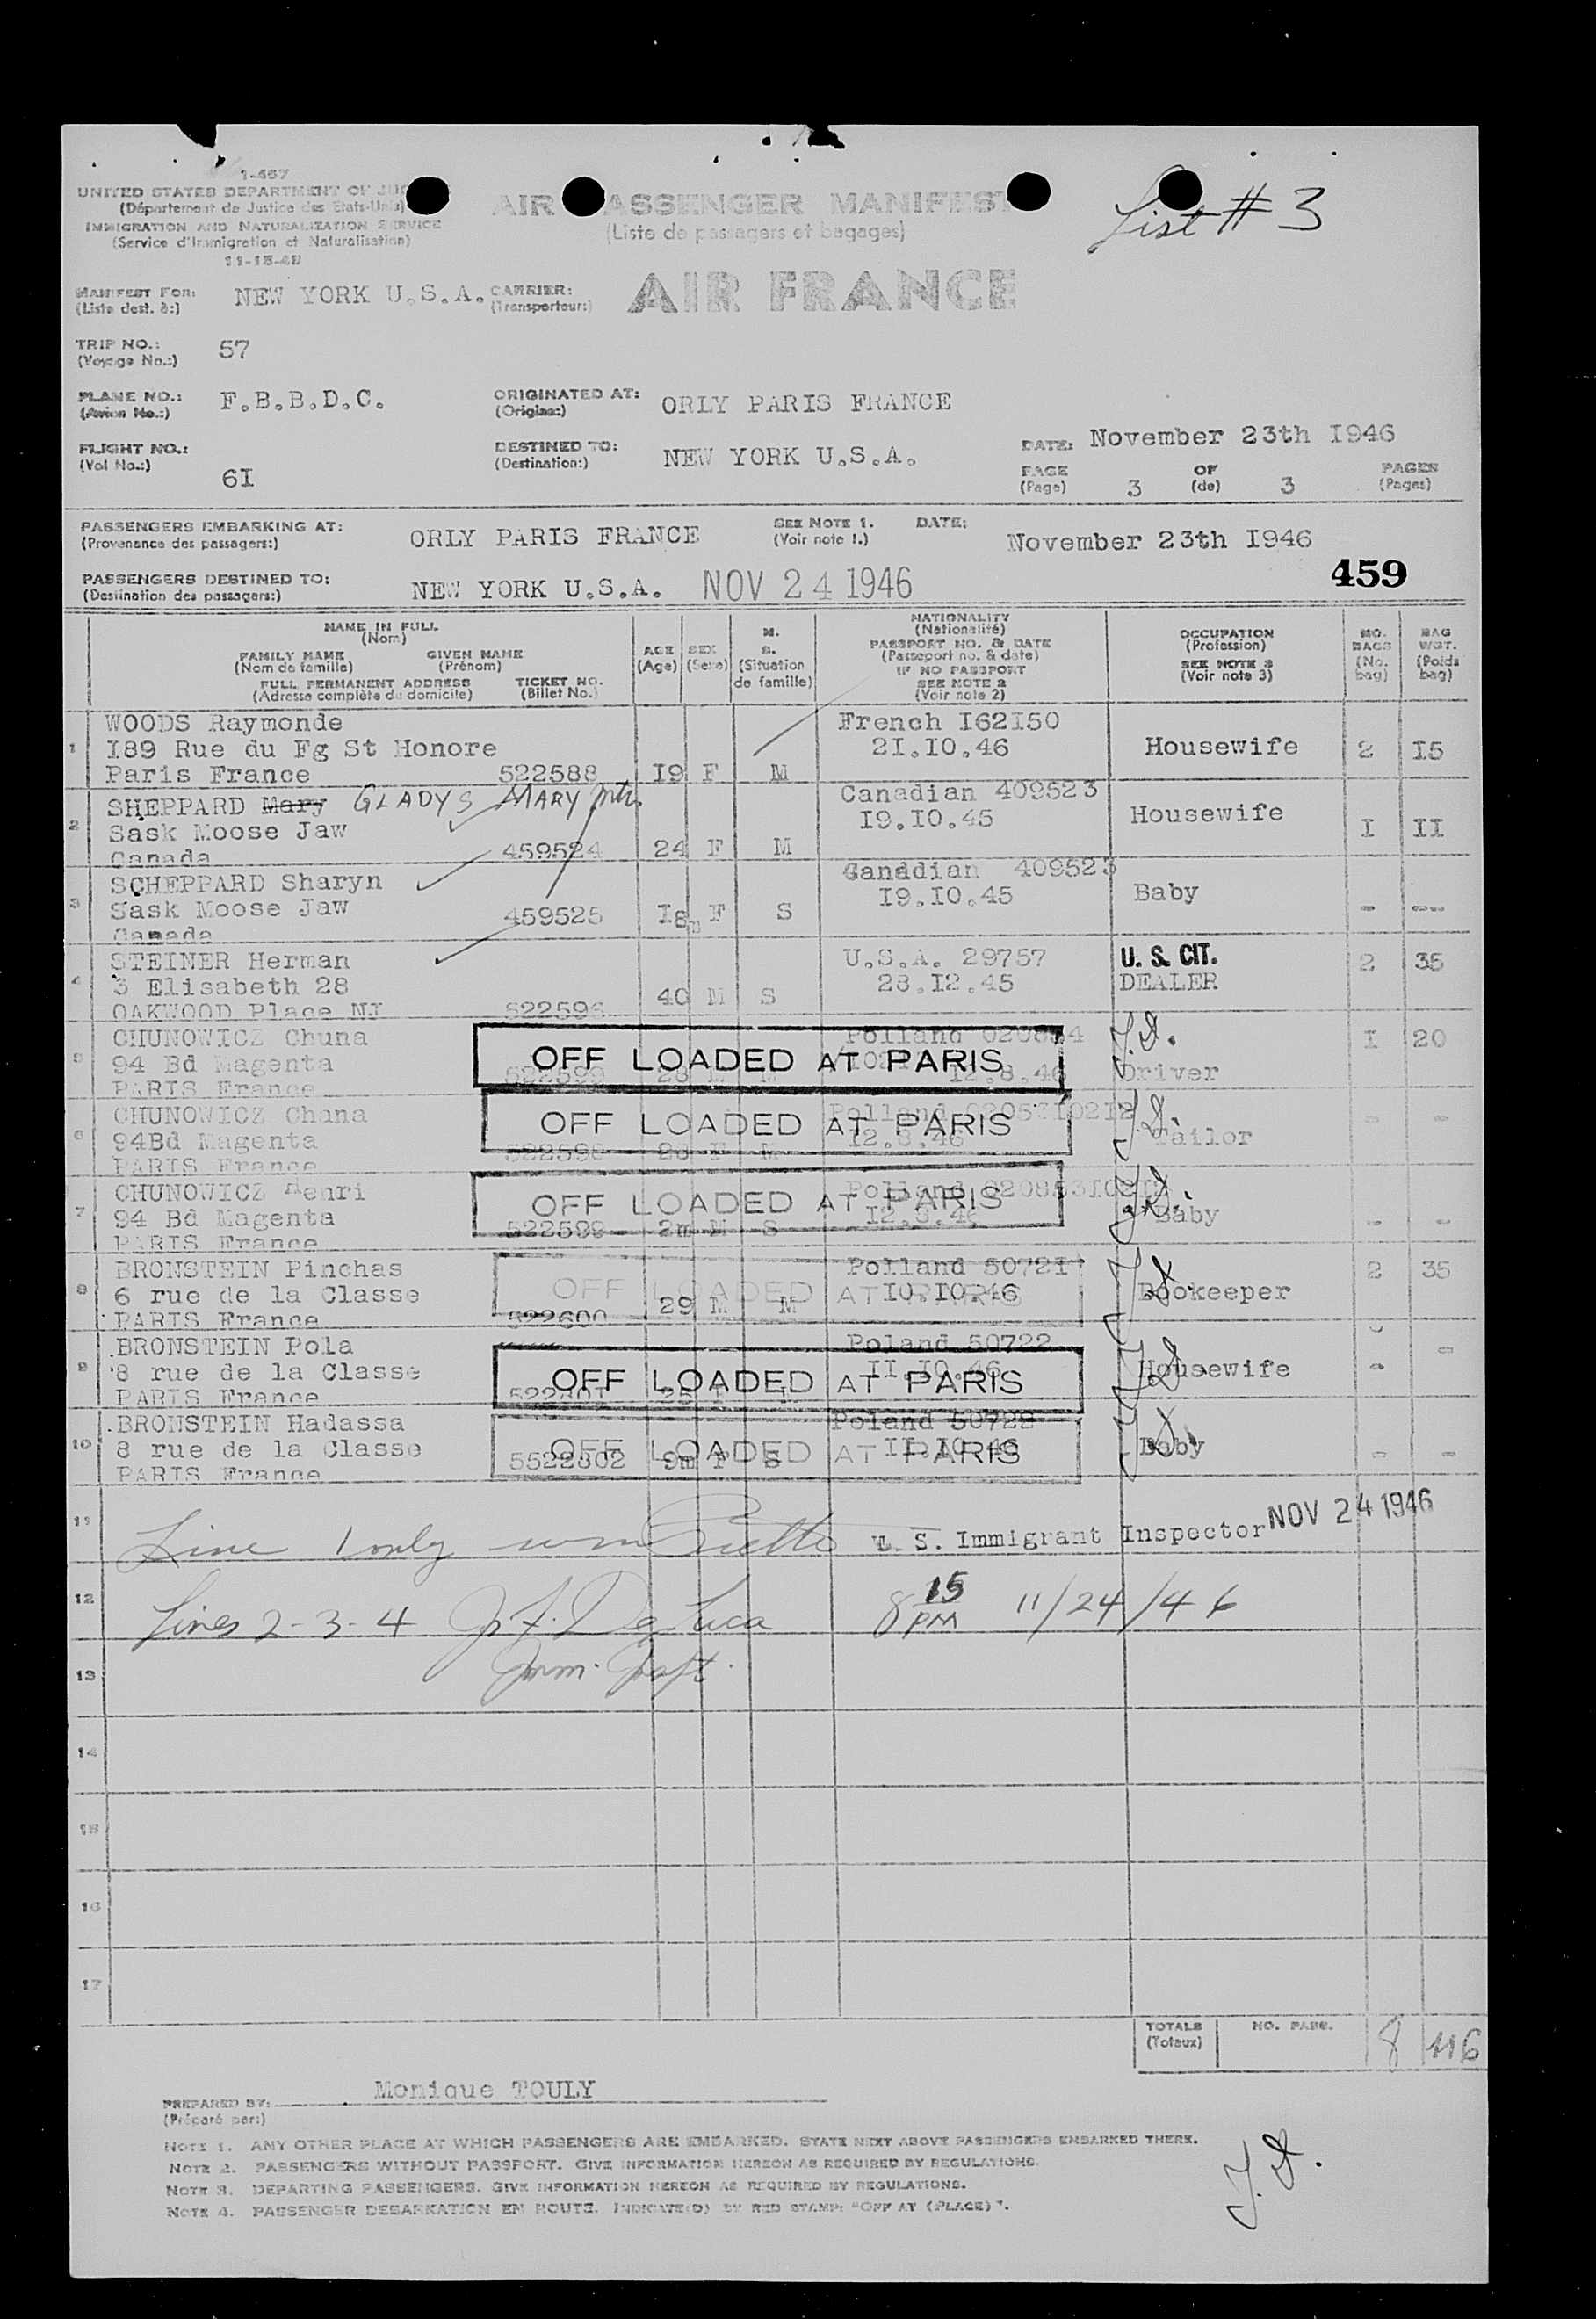 1-457
UNITED STATES DEPARTMENT OF JUS
(Département de Justice des Etats-Unis)
IMMIGRATION AND NATURALIZATION SERVICE
(Service d'Immigration et Naturalisation)
11-15-45
AIR PASSENGER MANIFEST
(Liste de passagers et bagages)
List # 3
MANIFEST FOR: NEW YORK U.S.A. CARRIER: AIR FRANCE
(Liste dest. à:) (Transporteur:)
TRIP NO.: 57
(Voyage No.:)
PLANE NO.: F.B.B.D.C. ORIGINATED AT: ORLY PARIS FRANCE
(Avion No.:) (Origine:)
FLIGHT NO.: 6I DESTINED TO: NEW YORK U.S.A. DATE: November 23th I946
(Vol No.:) (Destination:) PAGE 3 OF 3 PAGES
(Page) (de) (Pages)
PASSENGERS EMBARKING AT: ORLY PARIS FRANCE SEE NOTE 1. DATE: November 23th I946
(Provenance des passagers:) (Voir note 1.)
459
PASSENGERS DESTINED TO: NEW YORK U.S.A. NOV 24 1946
(Destination des passagers:)
NAME IN FULL
(Nom)
FAMILY NAME GIVEN NAME
(Nom de famille) (Prénom)
FULL PERMANENT ADDRESS TICKET NO.
(Adresse complète du domicile) (Billet No.)
AGE
(Age)
SEX
(Sexe)
M.
S.
(Situation
de famille)
NATIONALITY
(Nationalité)
PASSPORT NO. & DATE
(Passeport no. & date)
IF NO PASSPORT
SEE NOTE 2
(Voir note 2)
OCCUPATION
(Profession)
SEE NOTE 3
(Voir note 3)
NO.
BAGS
(No.
bag)
BAG
WGT.
(Poids
bag)
WOODS Raymonde French I62I50
1 I89 Rue du Fg St Honore 21.10.46 Housewife 2 I5
Paris France 522588 I9 F M
SHEPPARD Mary GLADYS MARY Canadian 409523
2 Sask Moose Jaw I9.IO.45 Housewife I II
Canada 459524 24 F M
SCHEPPARD Sharyn Canadian 409523
3 Sask Moose Jaw 459525 I8m F S I9.IO.45 Baby - --
Canada
STEINER Herman U.S.A. 29757 U. S. CIT. 2 35
4 3 Elisabeth 28 40 M S 28.I2.45 DEALER
OAKWOOD Place NJ 522596
CHUNOWICZ Chuna Polland J.D. I 20
5 94 Bd Magenta OFF LOADED AT PARIS I2.8.46 Driver
PARIS France
CHUNOWICZ Chana Polland J.D. - -
6 94Bd Magenta OFF LOADED AT PARIS I2.8.46 Tailor
PARIS France
CHUNOWICZ Henri Polland J.D.
7 94 Bd Magenta OFF LOADED AT PARIS I2.8.46 Baby - -
PARIS France 522599 2m M S
BRONSTEIN Pinchas Polland 5072I 2 35
8 6 rue de la Classe OFF LOADED AT PARIS 29 M M IO.IO.46 Bookeeper
PARIS France 522600
BRONSTEIN Pola Poland 50722 -
9 8 rue de la Classe OFF LOADED AT PARIS II.IO.46 Housewife -
PARIS France
BRONSTEIN Hadassa Poland 50722
10 8 rue de la Classe OFF LOADED AT PARIS II.IO.46 Baby - -
PARIS France 5522802 9m F S
11 Line 1 only U. S. Immigrant Inspector NOV 24 1946
12 Lines 2-3-4 J. F. De Luca 8 15 PM 11/24/46
13 Imm. Inspt.
14
15
16
17
TOTALS NO. PASS. 8 116
(Totaux)
PREPARED BY: Monique TOULY
(Préparé par:)
NOTE 1. ANY OTHER PLACE AT WHICH PASSENGERS ARE EMBARKED. STATE NEXT ABOVE PASSENGERS EMBARKED THERE.
NOTE 2. PASSENGERS WITHOUT PASSPORT. GIVE INFORMATION HEREON AS REQUIRED BY REGULATIONS.
NOTE 3. DEPARTING PASSENGERS. GIVE INFORMATION HEREON AS REQUIRED BY REGULATIONS.
NOTE 4. PASSENGER DEBARKATION EN ROUTE. INDICATE(D) BY RED STAMP: "OFF AT (PLACE)".
J.D.